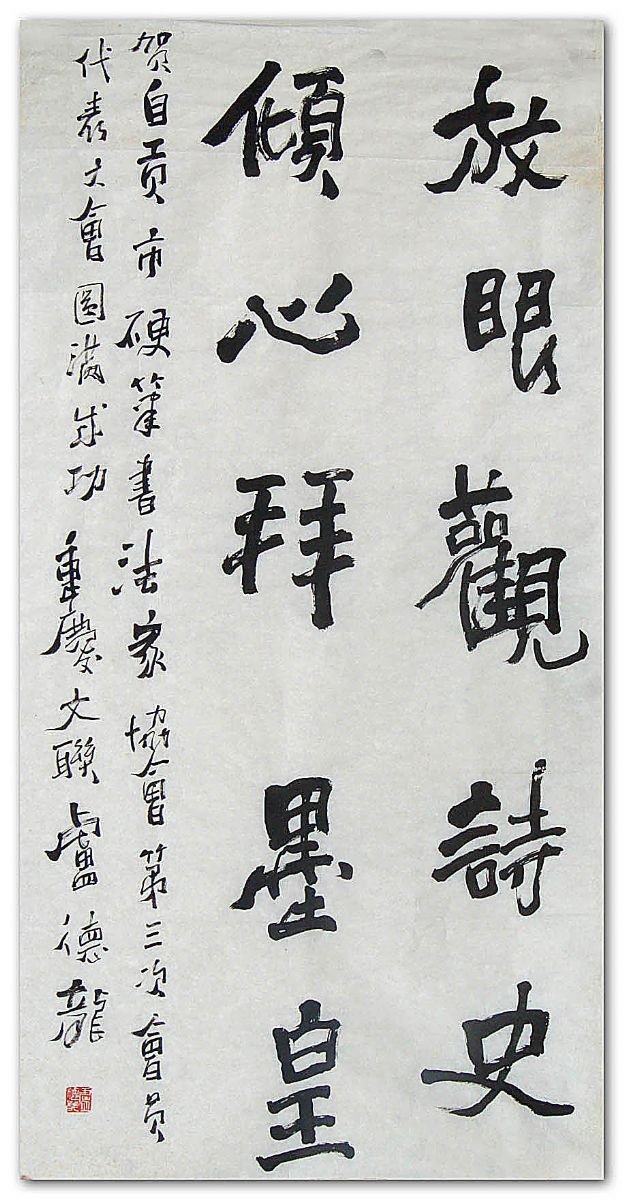 放眼觀詩史
傾心拜墨皇
贺自贡市硬筆書法家協會第三次會員
代表大會圆满成功 重慶文聯 盧德龍